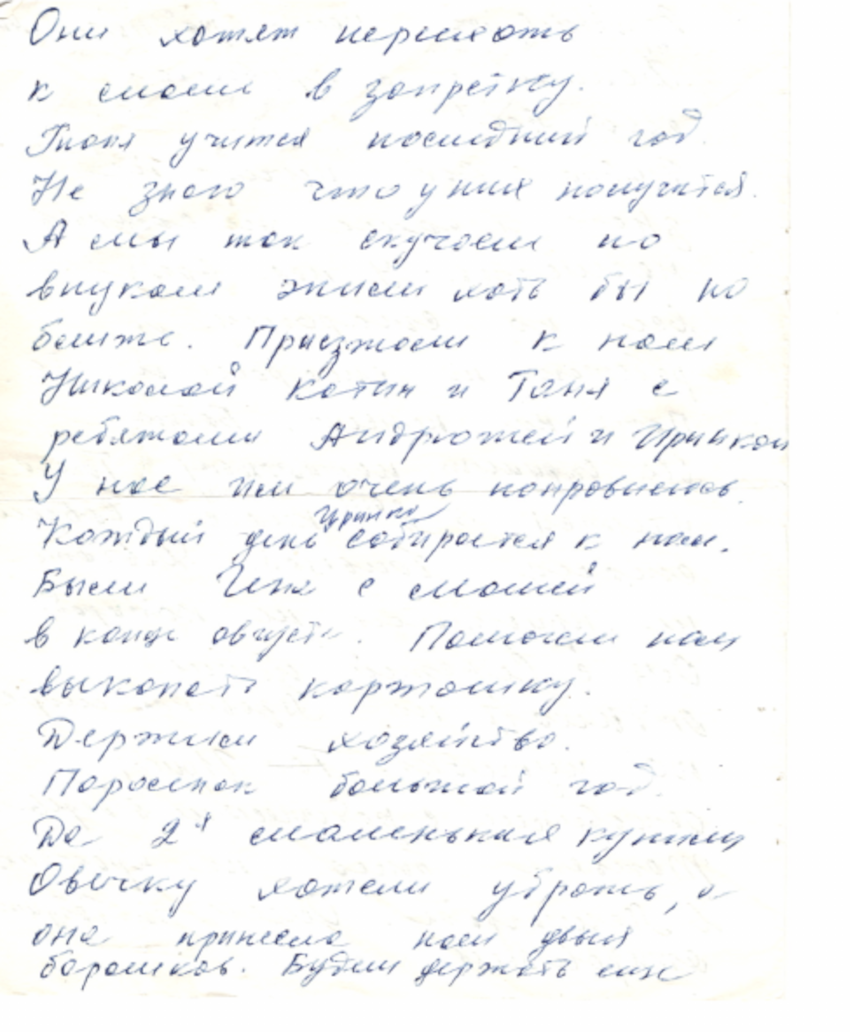 Они хотят переехать
к мами в запретку.
Таня учится последний год.
Не знаю что у них получится.
А мы так скучаем по
внукам жили хоть бы по
ближе. Приезжали к нам
Николай Котин и Таня с
ребятами Андрюшей и Иринкой
У нас им очень понравилось.
Каждый день Иринка собирается к нам.
Были Гена с Машей
в конце августа. Помогали нам
выкопать картошку.
Держим хозяйство.
Поросенок большой год.
Да 2х маленьких купили
Овечку хотели убрать, а
она принесла нам двых
барашков. Будем держать еще